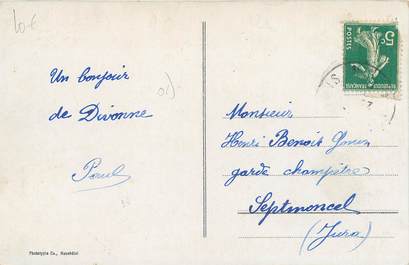 10€
Un bonjour
de Divonne
Paul
5c
POSTES
Monsieur
Henri Benoit Gonin
garde champêtre
Septmoncel
(Jura)
Phototypie Co., Neuchâtel